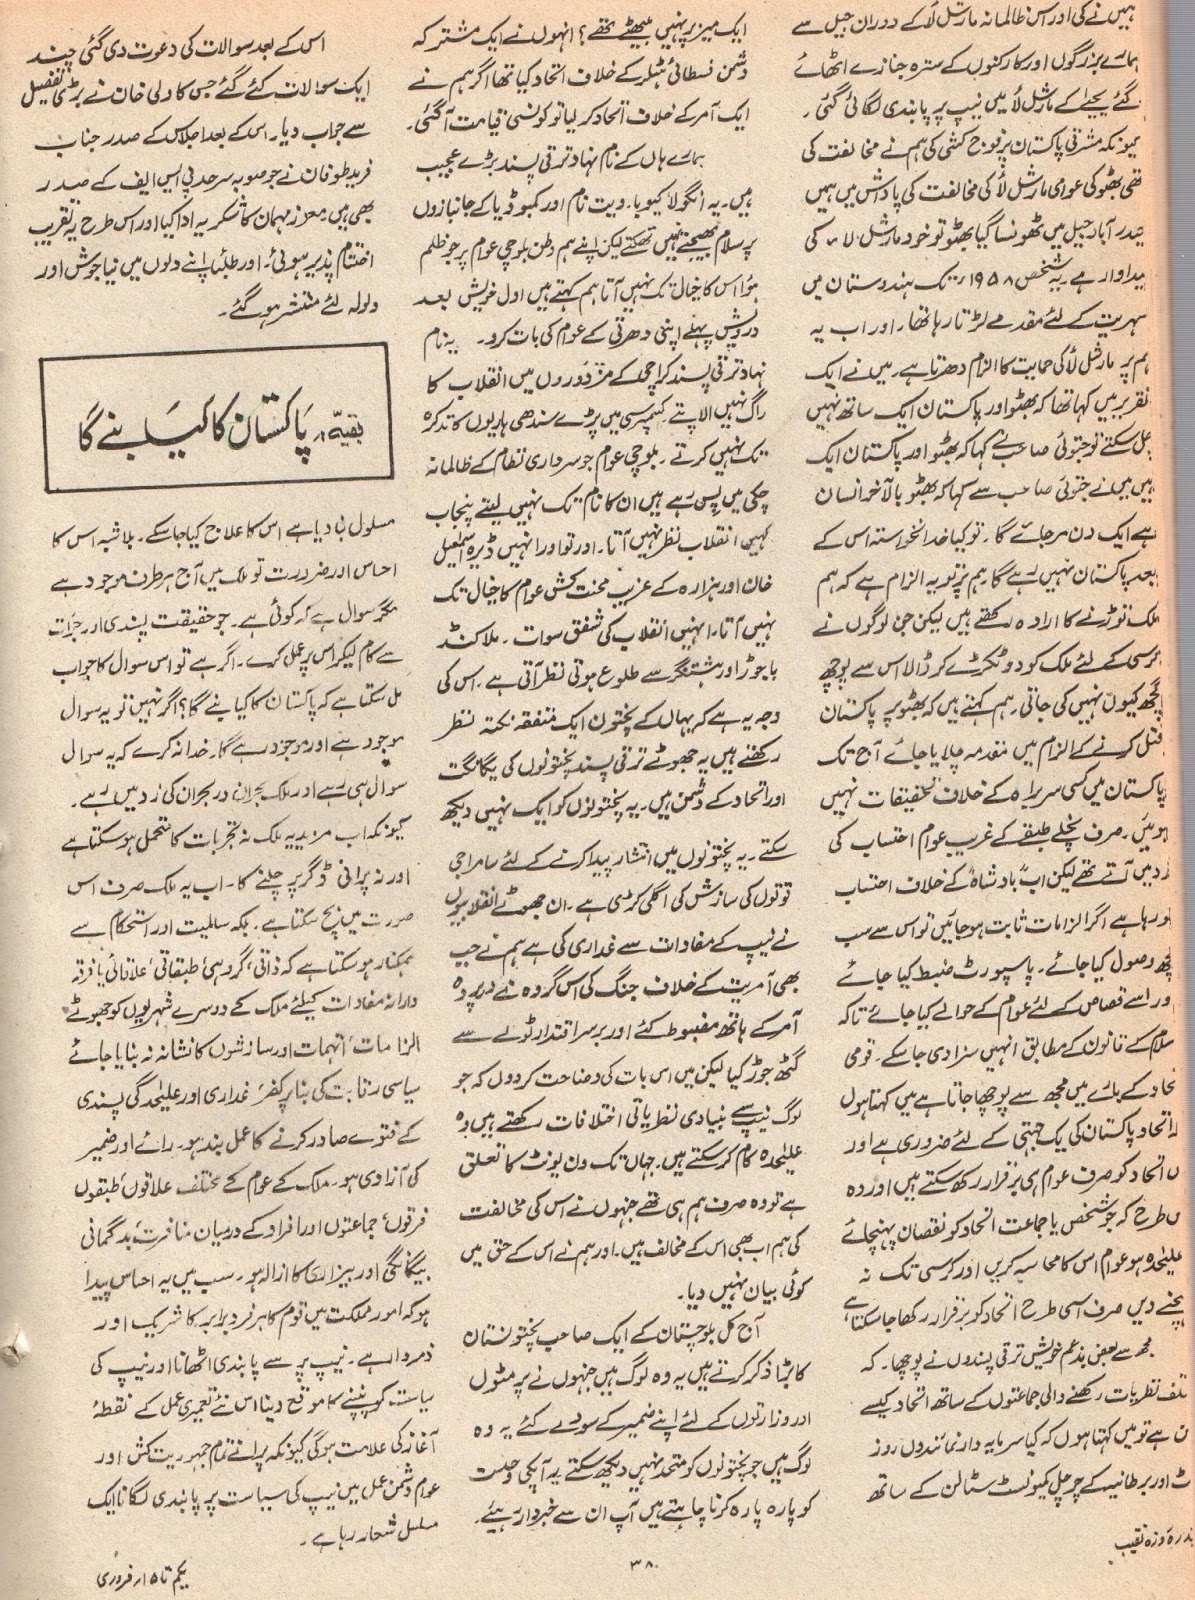 ہمیں نے کی اور اس ظالمانہ مارشل لأ کے دوران جیل سے
ہمارے بزرگوں اور کارکنوں کے سترہ جنازے اٹھائے
گئے یحییٰ کے مارشل لأ میں نیپ پر پابندی لگائی گئی۔
کیونکہ مشرقی پاکستان پر فوج کشی کی ہم نے مخالفت کی
تھی بھٹو کی عوامی مارشل لأ کی مخالفت کی پاداش میں ہمیں
حیدر آباد جیل میں ٹھونسا گیا بھٹو تو خود مارشل لاء کی
پیداوار ہے۔ یہ شخص ۱۹۵۸ء تک ہندوستان میں
شہریت کے لئے مقدمے لڑتا رہا تھا۔ اور اب یہ
ہم پر مارشل لأ کی حمایت کا الزام دھرتا ہے۔ میں نے ایک
تقریر میں کہا تھا کہ بھٹو اور پاکستان ایک ساتھ نہیں
چل سکتے تو جتوئی صاحب نے کہا کہ بھٹو اور پاکستان ایک
ہیں میں نے جتوئی صاحب سے کہا کہ بھٹو بالآخر انسان
ہے ایک دن مر جائے گا۔ تو کیا خدانخواستہ اس کے
بعد پاکستان نہیں رہے گا۔ ہم پر تو یہ الزام ہے کہ ہم
ملک توڑنے کا ارادہ رکھتے ہیں لیکن جن لوگوں نے
کرسی کے لئے ملک کو دو ٹکڑے کر ڈالا اس سے پوچھ
گچھ کیوں نہیں کی جاتی۔ ہم کہتے ہیں کہ بھٹو پر پاکستان
قتل کرنے کے الزام میں مقدمہ چلایا جائے آج تک
پاکستان میں کسی سربراہ کے خلاف تحقیقات نہیں
ہوئیں۔ صرف نچلے طبقے کے غریب عوام احتساب کی
زد میں آتے تھے لیکن اب بادشاہ کے خلاف احتساب
ہو رہا ہے اگر الزامات ثابت ہو جائیں تو اس سے سب
کچھ وصول کیا جائے۔ پاسپورٹ ضبط کیا جائے
اور اسے قصاص کے لئے عوام کے حوالے کیا جائے تاکہ
اسلام کے قانون کے مطابق انہیں سزا دی جا سکے۔ قومی
اتحاد کے بارے میں مجھ سے پوچھا جاتا ہے میں کہتا ہوں
کہ اتحاد پاکستان کی یک جہتی کے لئے ضروری ہے اور
اس اتحاد کو صرف عوام ہی برقرار رکھ سکتے ہیں اور وہ
اس طرح کہ جو شخص یا جماعت اتحاد کو نقصان پہنچائے
علیحدہ ہو عوام اس کا محاسبہ کریں اور کرسی تک نہ
پہنچنے دیں صرف اسی طرح اتحاد کو برقرار رکھا جا سکتا ہے
مجھ سے بعض بزعم خویش ترقی پسندوں نے پوچھا۔ کہ
مختلف نظریات رکھنے والی جماعتوں کے ساتھ اتحاد کیسے
ہے تو میں کہتا ہوں کہ کیا سرمایہ داری تندوں روز
ٹ اور برطانیہ کے چرچل کمیونسٹ سٹالن کے ساتھ
پندرہ روزہ نقیب
ایک میز پر نہیں بیٹھے تھے؟ انہوں نے ایک مشترکہ
دشمن فسطائی ہٹلر کے خلاف اتحاد کیا تھا اگر ہم نے
ایک آمر کے خلاف اتحاد کر لیا تو کونسی قیامت آ گئی۔
ہمارے ہاں کے نام نہاد ترقی پسند بڑے عجیب
ہیں۔ یہ انگولا کیوبا۔ ویت نام اور کمبوڈیا کے جانبازوں
پر سلام بھیجتے نہیں تھکتے لیکن اپنے ہم وطن بلوچی عوام پر جو ظلم
ہوا اس کا خیال تک نہیں آتا ہم کہتے ہیں اول خویش بعد
درویش پہلے اپنی دھرتی کے عوام کی بات کرو۔ یہ نام
نہاد ترقی پسند کراچی کے مزدوروں میں انقلاب کا
راگ نہیں الاپتے کسمپرسی میں پڑے سندھی ہاریوں کا تذکرہ
تک نہیں کرتے۔ بلوچی عوام جو سرداری نظام کے ظالمانہ
چکی میں پس رہے ہیں ان کا نام تک نہیں لیتے پنجاب
کہیں انقلاب نظر نہیں آتا۔ اور تو اور انہیں ڈیرہ اسمٰعیل
خان اور ہزارہ کے غریب محنت کش عوام کا خیال تک
نہیں آتا۔ انہیں انقلاب کی شفق سوات۔ ملاکنڈ
باجوڑ اور ہشتنگر سے طلوع ہوتی نظر آتی ہے۔ اس کی
وجہ یہ ہے کہ یہاں کے پختون ایک متفقہ نکتہ نظر
رکھتے ہیں یہ جھوٹے ترقی پسند پختونوں کی یگانگت
اور اتحاد کے دشمن ہیں۔ یہ پختونوں کو ایک نہیں دیکھ
سکتے۔ یہ پختونوں میں انتشار پیدا کرنے کے لئے سامراجی
قوتوں کی سازش کی اگلی کڑی ہے۔ ان جھوٹے انقلابیوں
نے نیپ کے مفادات سے غداری کی ہے ہم نے جب
بھی آمریت کے خلاف جنگ کی اس گروہ نے درپردہ
آمر کے ہاتھ مضبوط کئے اور برسر اقتدار ٹولے سے
گٹھ جوڑ کیا لیکن میں اس بات کی وضاحت کر دوں کہ جو
لوگ نیپ سے بنیادی نظریاتی اختلافات رکھتے ہیں وہ
علیحدہ کام کر سکتے ہیں۔ جہاں تک ون یونٹ کا تعلق
ہے تو وہ صرف ہم ہی تھے جنہوں نے اس کی مخالفت
کی ہم اب بھی اس کے مخالف ہیں۔ اور ہم نے اس کے حق میں
کوئی بیان نہیں دیا۔
آج کل بلوچستان کے ایک صاحب پختونستان
کا بڑا ذکر کرتے ہیں یہ وہ لوگ ہیں جنہوں نے پرمٹوں
اور وزارتوں کے لئے اپنے ضمیر کے سودے کئے یہ وہ
لوگ ہیں جو پختونوں کو متحد نہیں دیکھ سکتے یہ آپکی وحدت
کو پارہ پارہ کرنا چاہتے ہیں آپ ان سے خبردار رہیے۔
۳۸
اس کے بعد سوالات کی دعوت دی گئی چند
ایک سوالات کئے گئے جس کا ولی خان نے بڑی تفصیل
سے جواب دیا۔ اس کے بعد اجلاس کے صدر جناب
فرید طوفان نے جو صوبہ سرحد پی ایس ایف کے صدر
بھی ہیں معزز مہمان کا شکریہ ادا کیا اور اس طرح یہ تقریب
اختتام پذیر ہوئی۔ اور طلبأ اپنے دلوں میں نیا جوش اور
ولولہ لئے منتشر ہو گئے۔
بقیہ، پاکستان کا کیا بنے گا
مسلول بنا دیا ہے اس کا علاج کیا جا سکے۔ بلاشبہ اس کا
احساس اور ضرورت تو ملک میں آج ہر طرف موجود ہے
مگر سوال ہے کہ کوئی ہے۔ جو حقیقت پسندی اور جرات
سے کام لیکر اس پر عمل کرے۔ اگر ہے تو اس سوال کا جواب
مل سکتا ہے کہ پاکستان کا کیا بنے گا؟ اگر نہیں تو یہ سوال
موجود ہے اور موجود رہے گا۔ خدا نہ کرے کہ یہ سوال
سوال ہی رہے اور ملک بحران در بحران کی زد میں رہے۔
کیونکہ اب مزید یہ ملک نہ تجربات کا متحمل ہو سکتا ہے
اور نہ پرانی ڈگر پر چلنے کا۔ اب یہ ملک صرف اس
صورت میں بچ سکتا ہے۔ بلکہ سالمیت اور استحکام سے
ہمکنار ہو سکتا ہے کہ ذاتی، گروہی، طبقاتی، علاقائی یا فرقہ
دارانہ مفادات کیلئے ملک کے دوسرے شہریوں کو جھوٹے
الزامات، اتہمات اور سازشوں کا نشانہ نہ بنایا جائے
سیاسی رقابت کی بنا پر کفر، غداری اور علیحدگی پسندی
کے فتوے صادر کرنے کا عمل بند ہو۔ رائے اور ضمیر
کی آزادی ہو۔ ملک کے عوام کے مختلف علاقوں، طبقوں
فرقوں، جماعتوں اور افراد کے درمیان منافرت، بدگمانی
بیگانگی اور بیزاری کا ازالہ ہو۔ سب میں یہ احساس پیدا
ہو کہ امور مملکت میں قوم کا ہر فرد برابر کا شریک اور
ذمہ دار ہے۔ نیپ پر سے پابندی اٹھانا اور نیپ کی
سیاست کو پنپنے کا موقع دینا اس نئے تعمیری عمل کے نقطۂ
آغاز کی علامت ہو گی کیونکہ پرانے تمام جمہوریت کش اور
عوام دشمن عمل میں نیپ کی سیاست پر پابندی لگانا ایک
مسلسل شعار رہا ہے۔
یکم تا ۱۵ار فروری